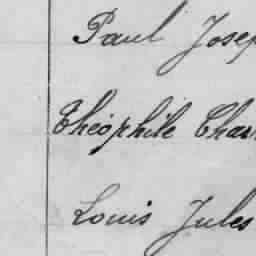 Paul Josep
Théophile Char
Louis Jules